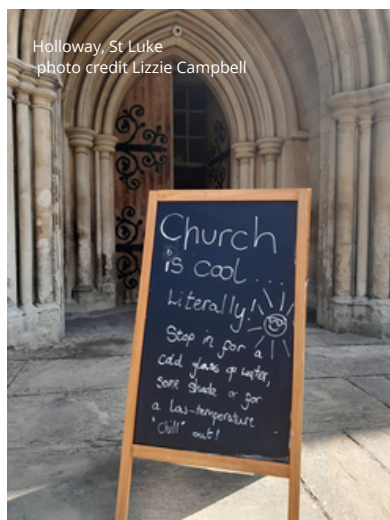 Holloway, St Luke
photo credit Lizzie Campbell
Church
is cool ...
Literally!
Stop in for a
cold glass of water,
some shade or for
a low-temperature
"chill" out!